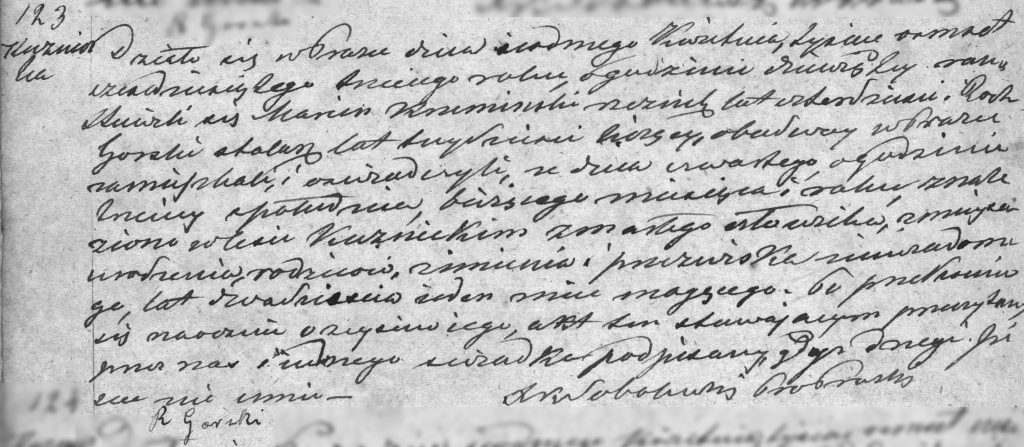 123
Kuźnica
Działo się w Prażce dnia siódmego Kwietnia, tysiąc osmset
sześdziesiątego trzeciego roku, o godzinie dziewiątej rano
Stawili się Marcin Krzemiński rzeźnik lat czterdzieści, i Roch
Gorski stolarz lat trzydzieści liczący, obadway w Prażce
zamieszkali, i oświadczyli, że dnia czwartego, o godzinie
trzeciey z południa, bieżącego miesiąca i roku, znale
ziono w lesie Kuznickim zmarłego człowieka, z mieysca
urodzenia, rodziców, z imienia i przezwiska niewiadome
go, lat dwadzieścia jeden mieć mogącego. Po przekonaniu
się naocznie o zejściu jego, akt ten stawającym przeczytany,
przez nas i jednego świadka podpisany, gdyż drugi pi
sać nie umie —
Sobolewski Proboszcz
R Gorski
124